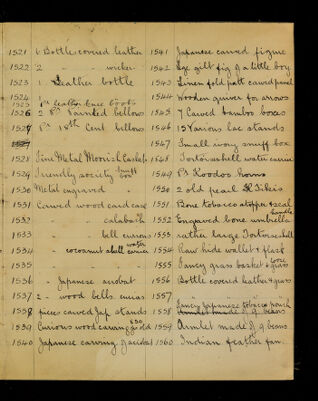 1521 1 Bottle covered leather
1522 2 " wicker
1523 1 Leather bottle
1524
1525 1 Pr leather base boots
1526 2 Prs Painted bellows
1527 Pr 18th Cent bellows
1527
1521 Fine Metal Moorish Caskets
1524 Friendly society small box
1530 Metal engraved "
1531 Carved wood card case
1532 " calabash
1533 " bell curios
1534 " cocoanut shell water carrier
1535 " " "
1536 " Japanese acrobat
1537 2 wood bells curios
1538 pieces carved Jap stands
1539 Curious wood carving old
1540 Japanese carving of acrobat
1541 Japanese carved figure
1542 Lge gilt fig of a little boy
1543 Linen fold patt carved panel
1544 Wooden quiver for arrows
1545 7 Carved bamboo boxes
1546 15 Various lac stands
1547 Small ivory snuff box
1548 Tortoiseshell water carrier
1549 Pr Koodoo horns
1550 2 old pearl
1551 Bone tobacco stopper & seal
1552 Engraved bone umbrella handle
1553 rather large Tortoiseshell
1554 Raw hide wallet & flask
1555 Fancy grass basket & lose
1556 Bottle covered leather & grass
1557 Fancy Japanese tobacco pouch
1558 Armlet made of g. beans
1559 Armlet made of g beans
1560 Indian feather fan